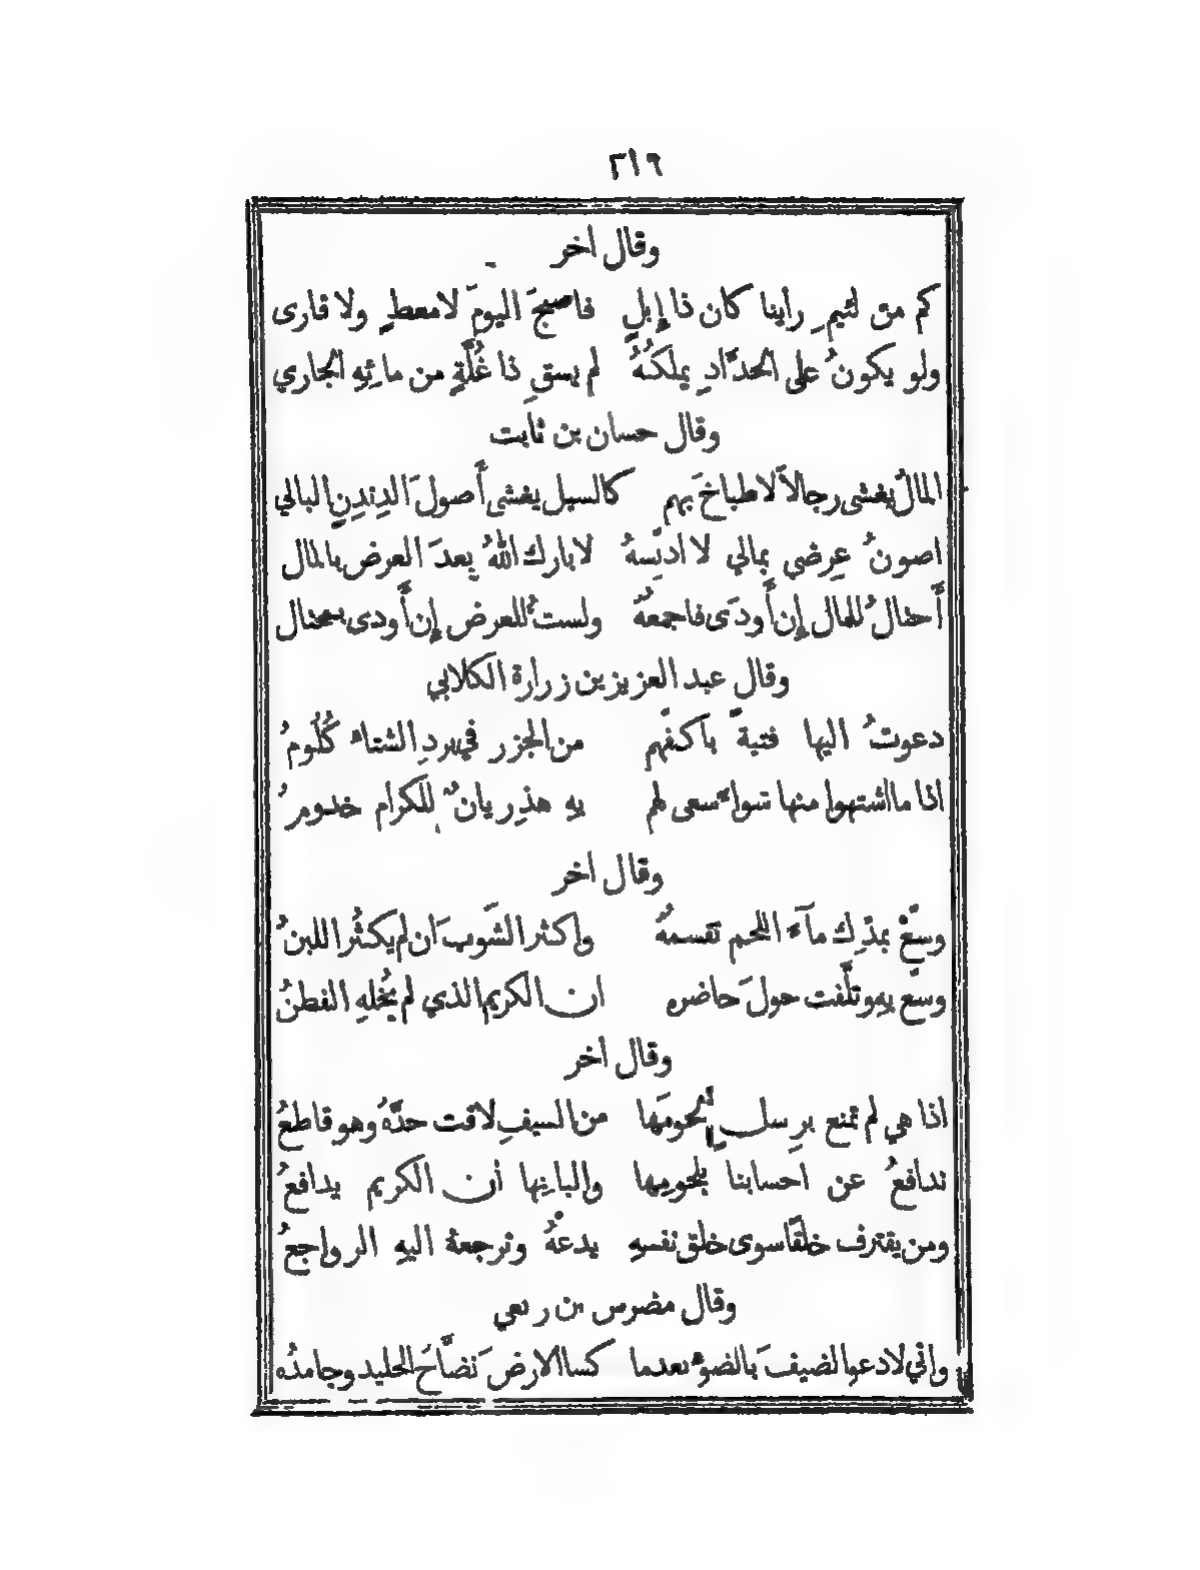 ٢١٩
وقال اخر
كم من لئيمِ راينا كان ذا إبلٍ فاصبحَ اليومَ لا معطٍ ولا قارى
ولو يكونُ على الحدّادِ يملكُهُ لم يسقِ ذا غُلّةٍ من مائِهِ الجاري
وقال حسان بن ثابت
المالُ يغشى رجالاً لا طباخَ بهم كالسيل يغشى أُصولَ الدِندِنِ البالي
اصونُ عِرضي بمالي لا ادنّسهُ لا بارك اللهُ بعدَ العرض بالمال
أَحتالُ للمال إن أَودَى فاجمعهُ ولستُ للعرض إن أَودى بمحتال
وقال عبد العزيز بن زرارة الكلابي
دعوتُ اليها فتيةً باكفّهم من الجزر في بردِ الشتاء كُلُومُ
اذا ما اشتهوا منها شواءً سعى لهم بهِ هذِريانٌ للكرام خدومُ
وقال اخر
وسعْ بمذِك ماءَ اللحم تقسمهُ واكثر الشَوبَ ان لم يكثُر اللبنُ
وسّع بهِ وتلفّت حولَ حاضره ان الكريم الذي لم يُخلهِ الفطنُ
وقال اخر
اذا هي لم تمنع برِسلٍ لحومَها من السيفِ لاقت حدَّهُ وهو قاطعُ
ندافعُ عن احسابنا بلحومِها والبانِها ان الكريم يدافعُ
ومن يقترف خلقًا سوى خلق نفسهِ يدعْهُ وترجعهُ اليهِ الرواجعُ
وقال مضرس بن ربعي
واني لادعو الضيفَ بالضوءِ بعدما كسا الارضَ نضّاحَ الجليد وجامدُه